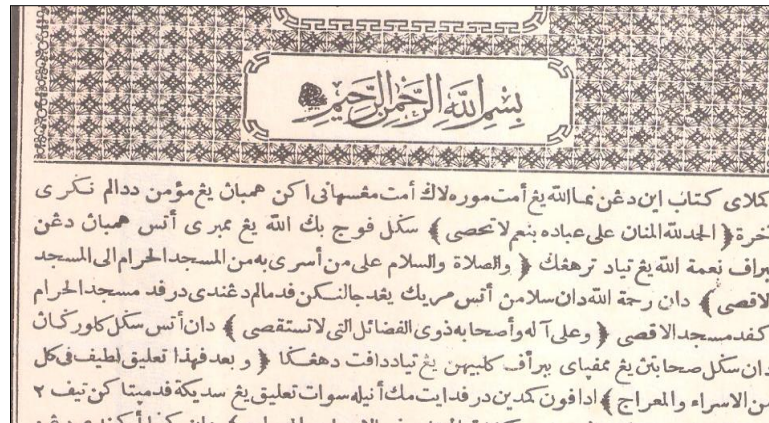 بسم الله الرحمن الرحيم
كملاي كتاب اين دغن نما الله يغ أمت موره لاك أمت مغسهاني اكن همبان يغ مؤمن ددالم نكري
آخرة ﴿ الحمد لله المنان على عباده بنعم لا تحصى ﴾ سكل فوج بك الله يغ ممبري أتس همبان دغن
ببراف نعمة الله يغ تياد ترهغك ﴿ والصلاة والسلام على من أسرى به من المسجد الحرام الى المسجد
الاقصى ﴾ دان رحمة الله دان سلامن أتس مريك يغد جالنكن فد مالم دغندى درفد مسجد الحرام
كفد مسجد الاقصى ﴿ وعلى آله وأصحابه ذوى الفضائل التى لا تستقصى ﴾ دان أتس سكل كلوركان
دان سكل صحابتن يغ ممفياي ببراف كلبيهن يغ تياد دافت دهغكا ﴿ وبعد فهذا تعليق لطيف فى كل
من الاسراء والمعراج ﴾ ادافون كمدين درفد ايت مك أنيله سوات تعليق يغ سديكة فد مپتاكن تيف ٢